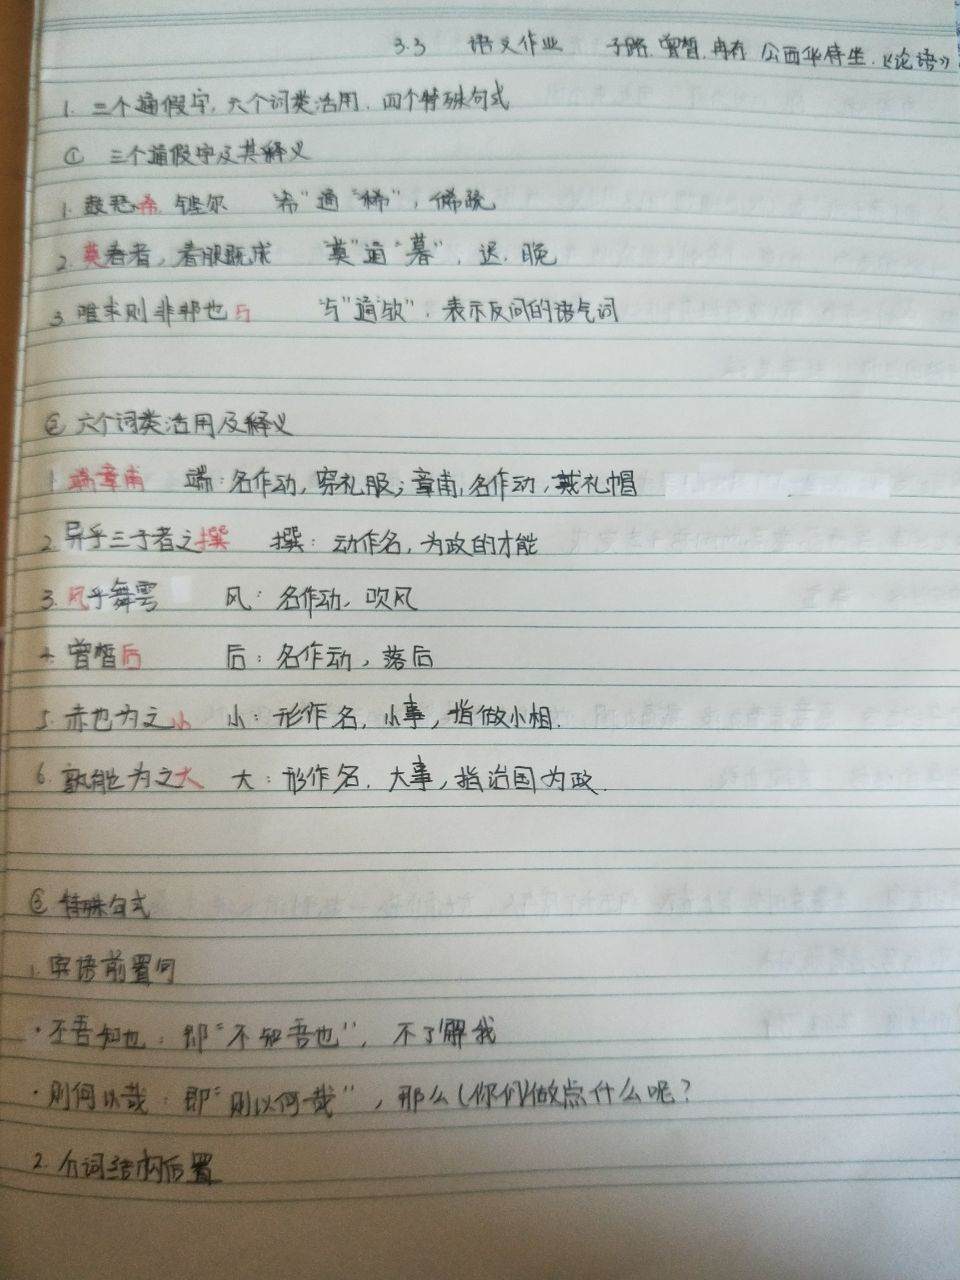 3.3 语文作业 子路、曾皙、冉有、公西华侍坐.《论语》
1. 三个通假字, 六个词类活用. 四个特殊句式
① 三个通假字及其释义
1. 鼓瑟希, 铿尔 "希"通"稀", 稀疏
2. 莫春者, 春服既成 "莫"通"暮", 迟. 晚
3. 唯求则非邦也与 "与"通"欤". 表示反问的语气词
② 六个词类活用及释义
1. 端章甫 端:名作动, 穿礼服; 章甫, 名作动, 戴礼帽
2. 异乎三子者之撰 撰: 动作名, 为政的才能
3. 风乎舞雩 风: 名作动, 吹风
4. 曾皙后 后: 名作动, 落后
5. 赤也为之小 小: 形作名, 小事, 指做小相.
6. 孰能为之大 大: 形作名. 大事, 指治国为政.
③ 特殊句式
1. 宾语前置句
·不吾知也: 即"不知吾也", 不了解我
·则何以哉: 即"则以何哉", 那么(你们)做点什么呢?
2. 介词结构后置